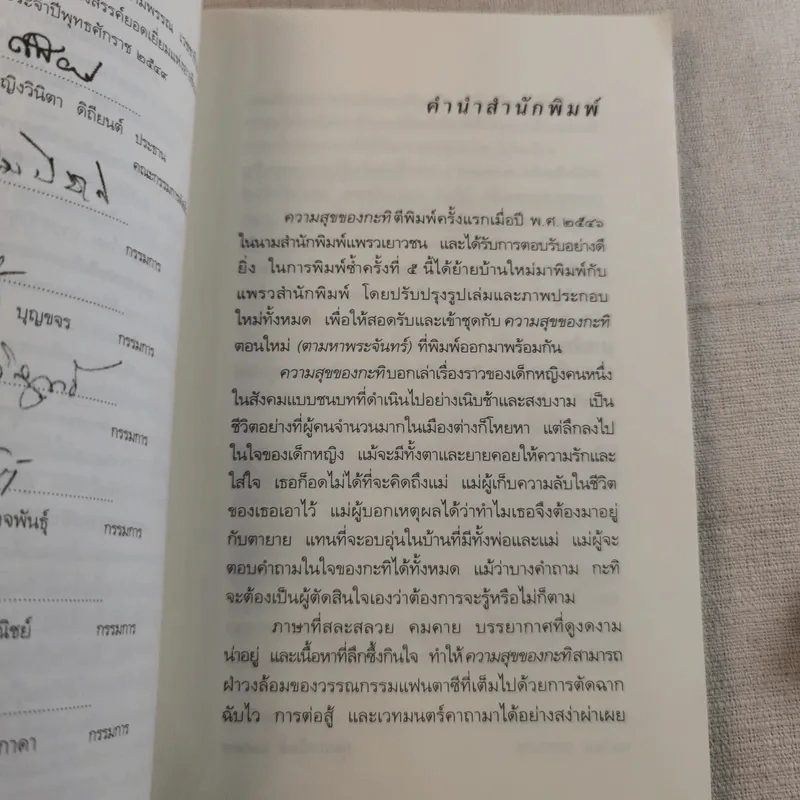 ประจำปีพุทธศักราช ๒๕๔๙
ญิงวินิตา ดิถียนต์ ประธาน
กรรมการ
บุญขจร กรรมการ
กรรมการ
วงจพันธุ์ กรรมการ
กรรมการ
กาคา กรรมการ
คำนำสำนักพิมพ์
ความสุขของกะทิ ตีพิมพ์ครั้งแรกเมื่อปี พ.ศ. ๒๕๔๖
ในนามสำนักพิมพ์แพรวเยาวชน และได้รับการตอบรับอย่างดี
ยิ่ง ในการพิมพ์ซ้ำครั้งที่ ๕ นี้ได้ย้ายบ้านใหม่มาพิมพ์กับ
แพรวสำนักพิมพ์ โดยปรับปรุงรูปเล่มและภาพประกอบ
ใหม่ทั้งหมด เพื่อให้สอดรับและเข้าชุดกับ ความสุขของกะทิ
ตอนใหม่ (ตามหาพระจันทร์) ที่พิมพ์ออกมาพร้อมกัน
ความสุขของกะทิบอกเล่าเรื่องราวของเด็กหญิงคนหนึ่ง
ในสังคมแบบชนบทที่ดำเนินไปอย่างเนิบช้าและสงบงาม เป็น
ชีวิตอย่างที่ผู้คนจำนวนมากในเมืองต่างก็โหยหา แต่ลึกลงไป
ในใจของเด็กหญิง แม้จะมีทั้งตาและยายคอยให้ความรักและ
ใส่ใจ เธอก็อดไม่ได้ที่จะคิดถึงแม่ แม่ผู้เก็บความลับในชีวิต
ของเธอเอาไว้ แม่ผู้บอกเหตุผลได้ว่าทำไมเธอจึงต้องมาอยู่
กับตายาย แทนที่จะอบอุ่นในบ้านที่มีทั้งพ่อและแม่ แม่ผู้จะ
ตอบคำถามในใจของกะทิได้ทั้งหมด แม้ว่าบางคำถาม กะทิ
จะต้องเป็นผู้ตัดสินใจเองว่าต้องการจะรู้หรือไม่ก็ตาม
ภาษาที่สละสลวย คมคาย บรรยากาศที่ดูงดงาม
น่าอยู่ และเนื้อหาที่ลึกซึ้งกินใจ ทำให้ ความสุขของกะทิ สามารถ
ฝ่าวงล้อมของวรรณกรรมแฟนตาซีที่เต็มไปด้วยการตัดฉาก
ฉับไว การต่อสู้ และเวทมนตร์คาถามาได้อย่างสง่าผ่าเผย